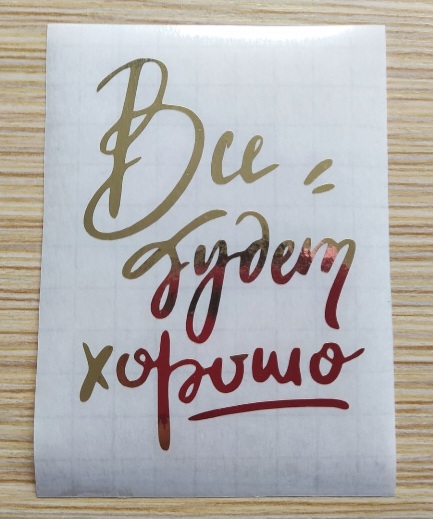 Всё
будет
хорошо